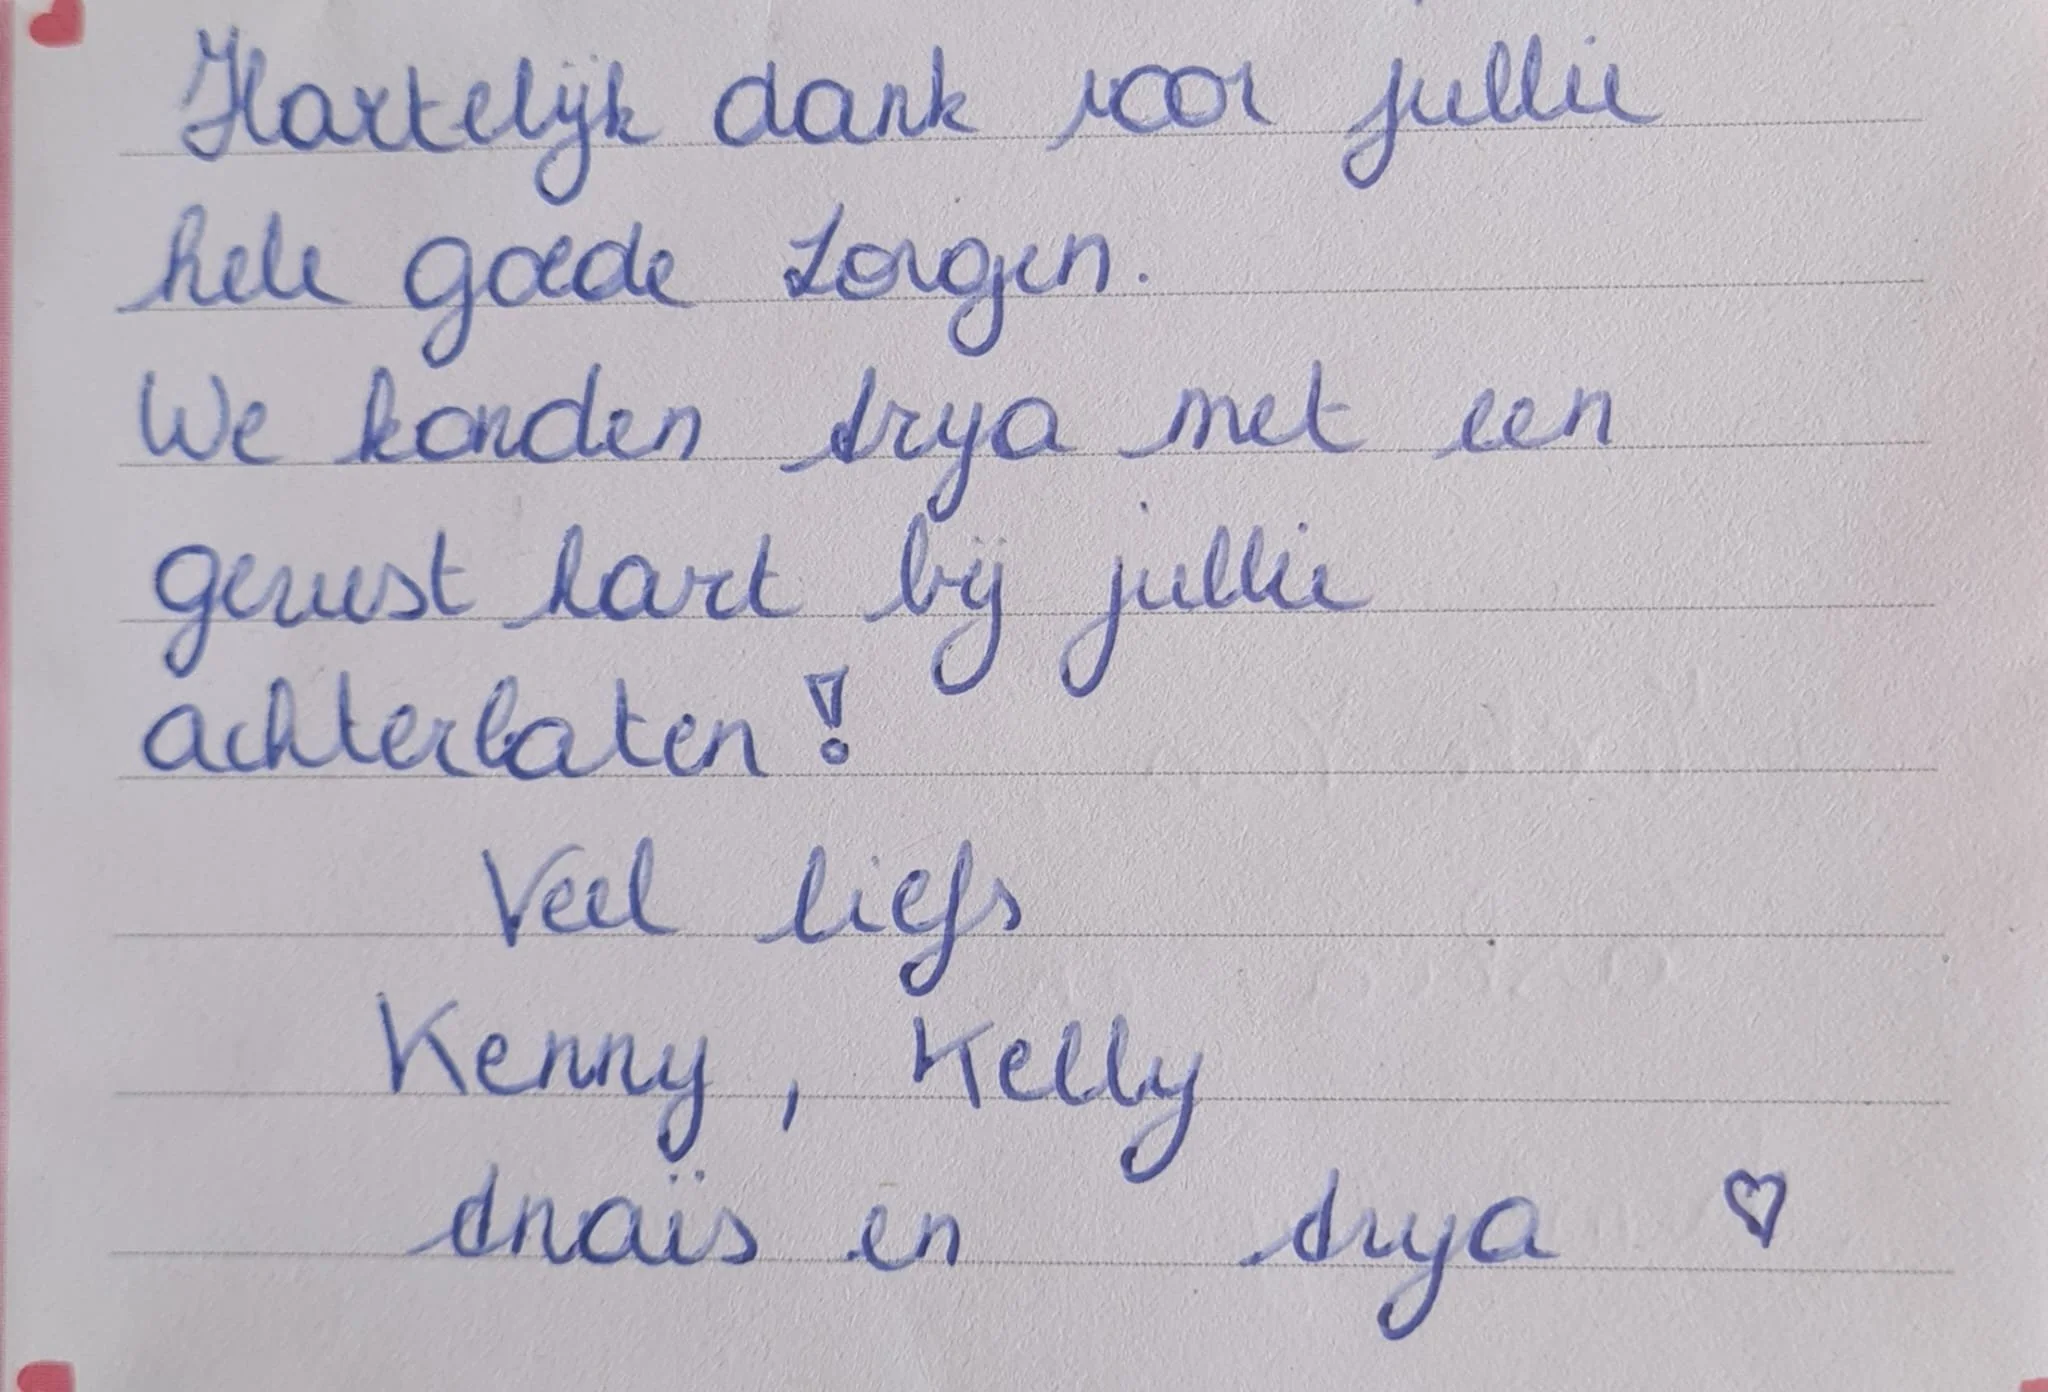 Hartelijk dank voor jullie
hele goede zorgen.
We konden Arya met een
gerust hart bij jullie
achterlaten!
Veel liefs
Kenny, Kelly
Anaïs en Arya ♡